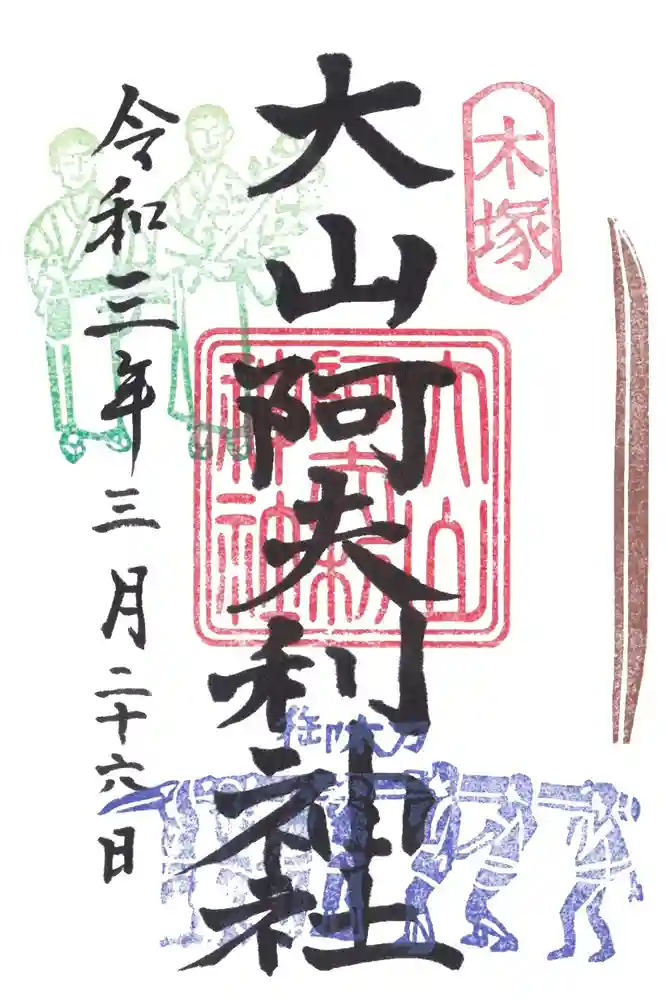 木塚
大山阿夫利神社
大山
阿夫利
神社
令和三年三月二十六日